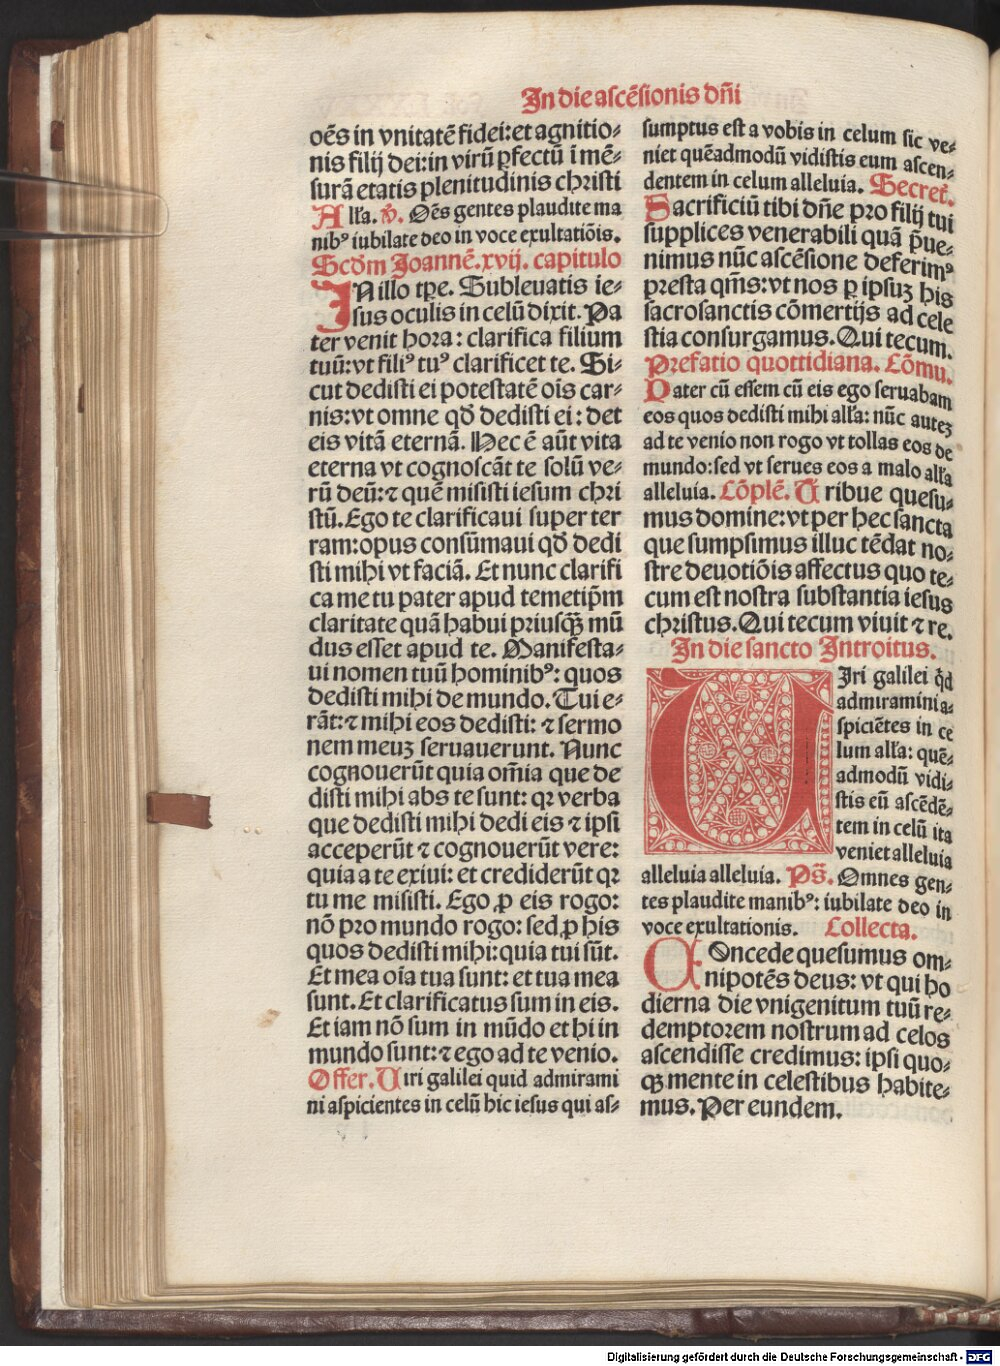 In die ascēsionis dn̄i
oēs in vnitatē fidei: et agnitio⸗
nis filij dei: in virū ꝑfectū ī mē⸗
surā etatis plenitudinis christi
All'a. ℣. Oēs gentes plaudite ma
nibꝰ iubilate deo in voce exultatiōis.
Scd̄m Joannē. xvij. capitulo
IN illo tꝑe. Subleuatis ie⸗
sus oculis in celū dixit. Pa
ter venit hora: clarifica filium
tuū: vt filiꝰ tuꝰ clarificet te. Si⸗
cut dedisti ei potestatē oīs car⸗
nis: vt omne qd̄ dedisti ei: det
eis vitā eternā. Hec ē aūt vita
eterna vt cognoscāt te solū ve⸗
rū deū: ⁊ quē misisti iesum chri
stū. Ego te clarificaui super ter
ram: opus consūmaui qd̄ dedi
sti mihi vt faciā. Et nunc clarifi
ca me tu pater apud temetip̄m
claritate quā habui priusqꝫ mū
dus esset apud te. Manifesta⸗
ui nomen tuū hominibꝰ: quos
dedisti mihi de mundo. Tui e⸗
rāt: ⁊ mihi eos dedisti: ⁊ sermo
nem meuꝫ seruauerunt. Nunc
cognouerūt quia om̄ia que de
disti mihi abs te sunt: qꝛ verba
que dedisti mihi dedi eis ⁊ ipsi
acceperūt ⁊ cognouerūt vere:
quia a te exiui: et crediderūt qꝛ
tu me misisti. Ego ꝓ eis rogo:
nō pro mundo rogo: sed ꝓ his
quos dedisti mihi: quia tui sūt.
Et mea oīa tua sunt: et tua mea
sunt. Et clarificatus sum in eis.
Et iam nō sum in mūdo et hi in
mundo sunt: ⁊ ego ad te venio.
Offer. Viri galilei quid admirami
ni aspicientes in celū hic iesus qui as⸗
sumptus est a vobis in celum sic ve⸗
niet quēadmodū vidistis eum ascen⸗
dentem in celum alleluia. Secret̄.
Sacrificiū tibi dn̄e pro filij tui
supplices venerabili quā p̄ue⸗
nimus nūc ascēsione deferimꝰ
presta qm̄s: vt nos ꝑ ipsuꝫ his
sacrosanctis cōmertijs ad cele
stia consurgamus. Qui tecum.
Prefatio quottidiana. Cōmu.
Pater cū essem cū eis ego seruabam
eos quos dedisti mihi all'a: nūc auteꝫ
ad te venio non rogo vt tollas eos de
mundo: sed vt serues eos a malo all'a
alleluia. Cōplē. Tribue quesu⸗
mus domine: vt per hec sancta
que sumpsimus illuc tēdat no⸗
stre deuotiōis affectus quo te⸗
cum est nostra substantia iesus
christus. Qui tecum viuit ⁊ re.
In die sancto Introitus.
VIri galilei qd
admiramini a⸗
spiciētes in ce
lum all'a: quē⸗
admodū vidi⸗
stis eū ascēdē⸗
tem in celū ita
veniet alleluia
alleluia alleluia. Ps̄. Omnes gen⸗
tes plaudite manibꝰ: iubilate deo in
voce exultationis. Collecta.
COncede quesumus om⸗
nipotēs deus: vt qui ho
dierna die vnigenitum tuū re⸗
demptorem nostrum ad celos
ascendisse credimus: ipsi quo⸗
qꝫ mente in celestibus habite⸗
mus. Per eundem.
Digitalisierung gefördert durch die Deutsche Forschungsgemeinschaft - DFG